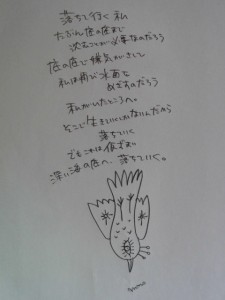 落ちて行く 私
たぶん底の底まで
沈むことが必要なのだろう
底の底で 嫌気がさして
私は再び水面を
めざすのだろう
私がいたところへ。
そこで生きていくしかないんだから
落ちていく
でもこれは
深い海の底へ 落ちていく。